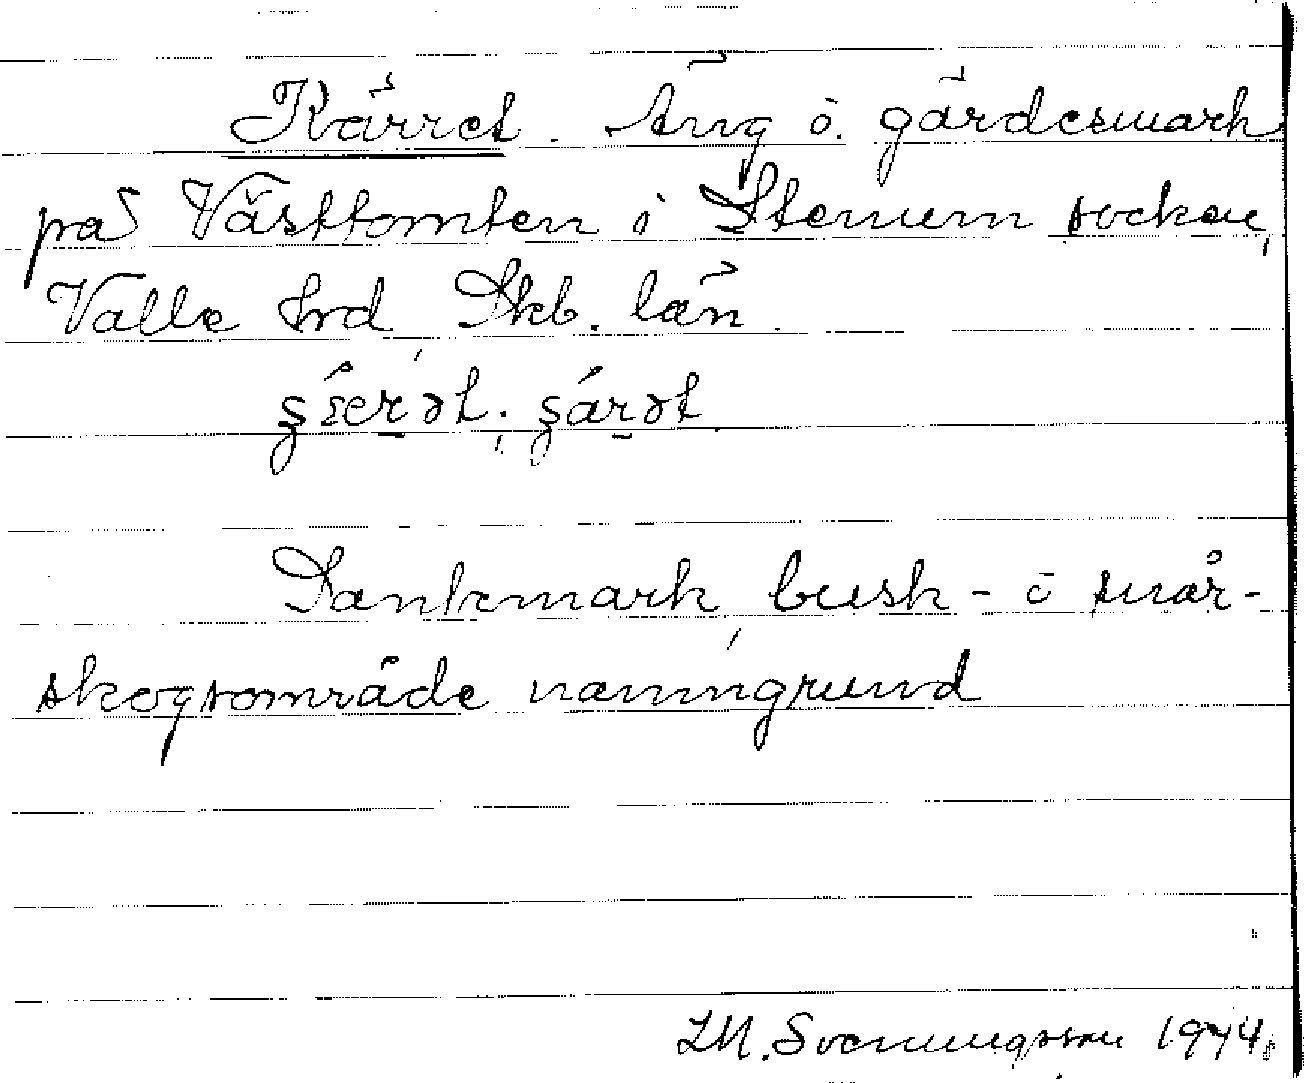 Kärret. Äng o. gärdesmark
på Västtomten i Stenum socken,
Valle hrd, Skb. län
Sankmark, busk- o snår-
skogsområde namngrund
Svenningsson 1944.